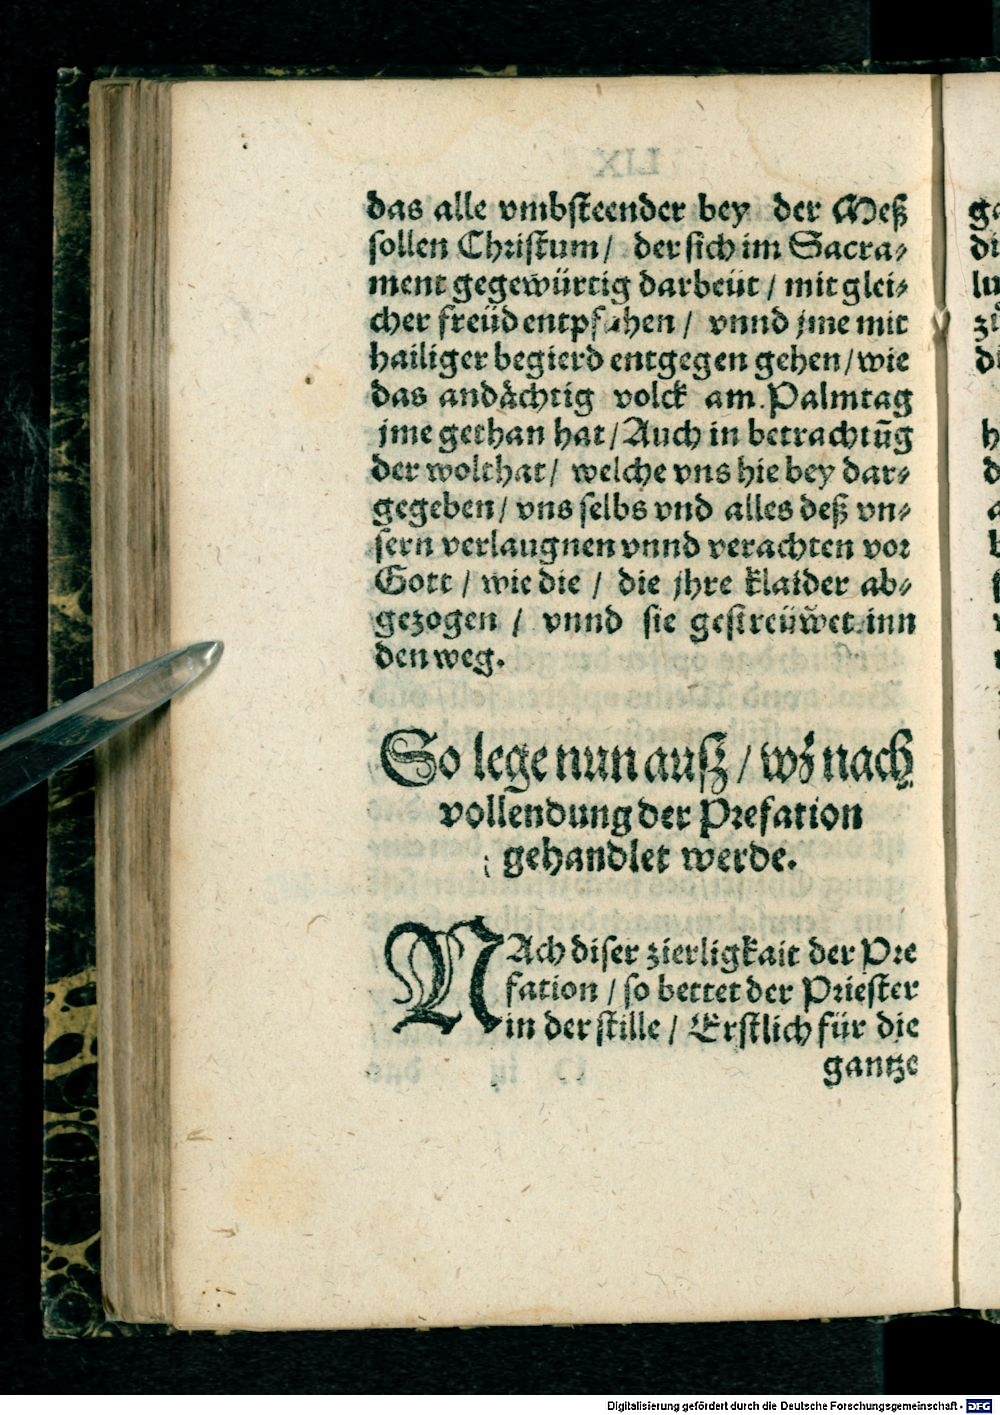 das alle vmbsteender bey der Meß
sollen Christum / der sich im Sacra⸗
ment gegewürtig darbeüt / mit glei⸗
cher freüd entpfahen / vnnd jme mit
hailiger begierd entgegen gehen / wie
das andächtig volck am Palmtag
jme gethan hat / Auch in betrachtūg
der wolthat / welche vns hie bey dar⸗
gegeben / vns selbs vnd alles deß vn⸗
sern verlaugnen vnnd verachten vor
Gott / wie die / die jhre klaider ab⸗
gezogen / vnnd sie gestreüwet inn
den weg.
So lege nun ausz / wz nach
vollendung der Prefation
gehandlet werde.
NAch diser zierligkait der Pre
fation / so bettet der Priester
in der stille / Erstlich für die
gantze
Digitalisierung gefördert durch die Deutsche Forschungsgemeinschaft - DFG